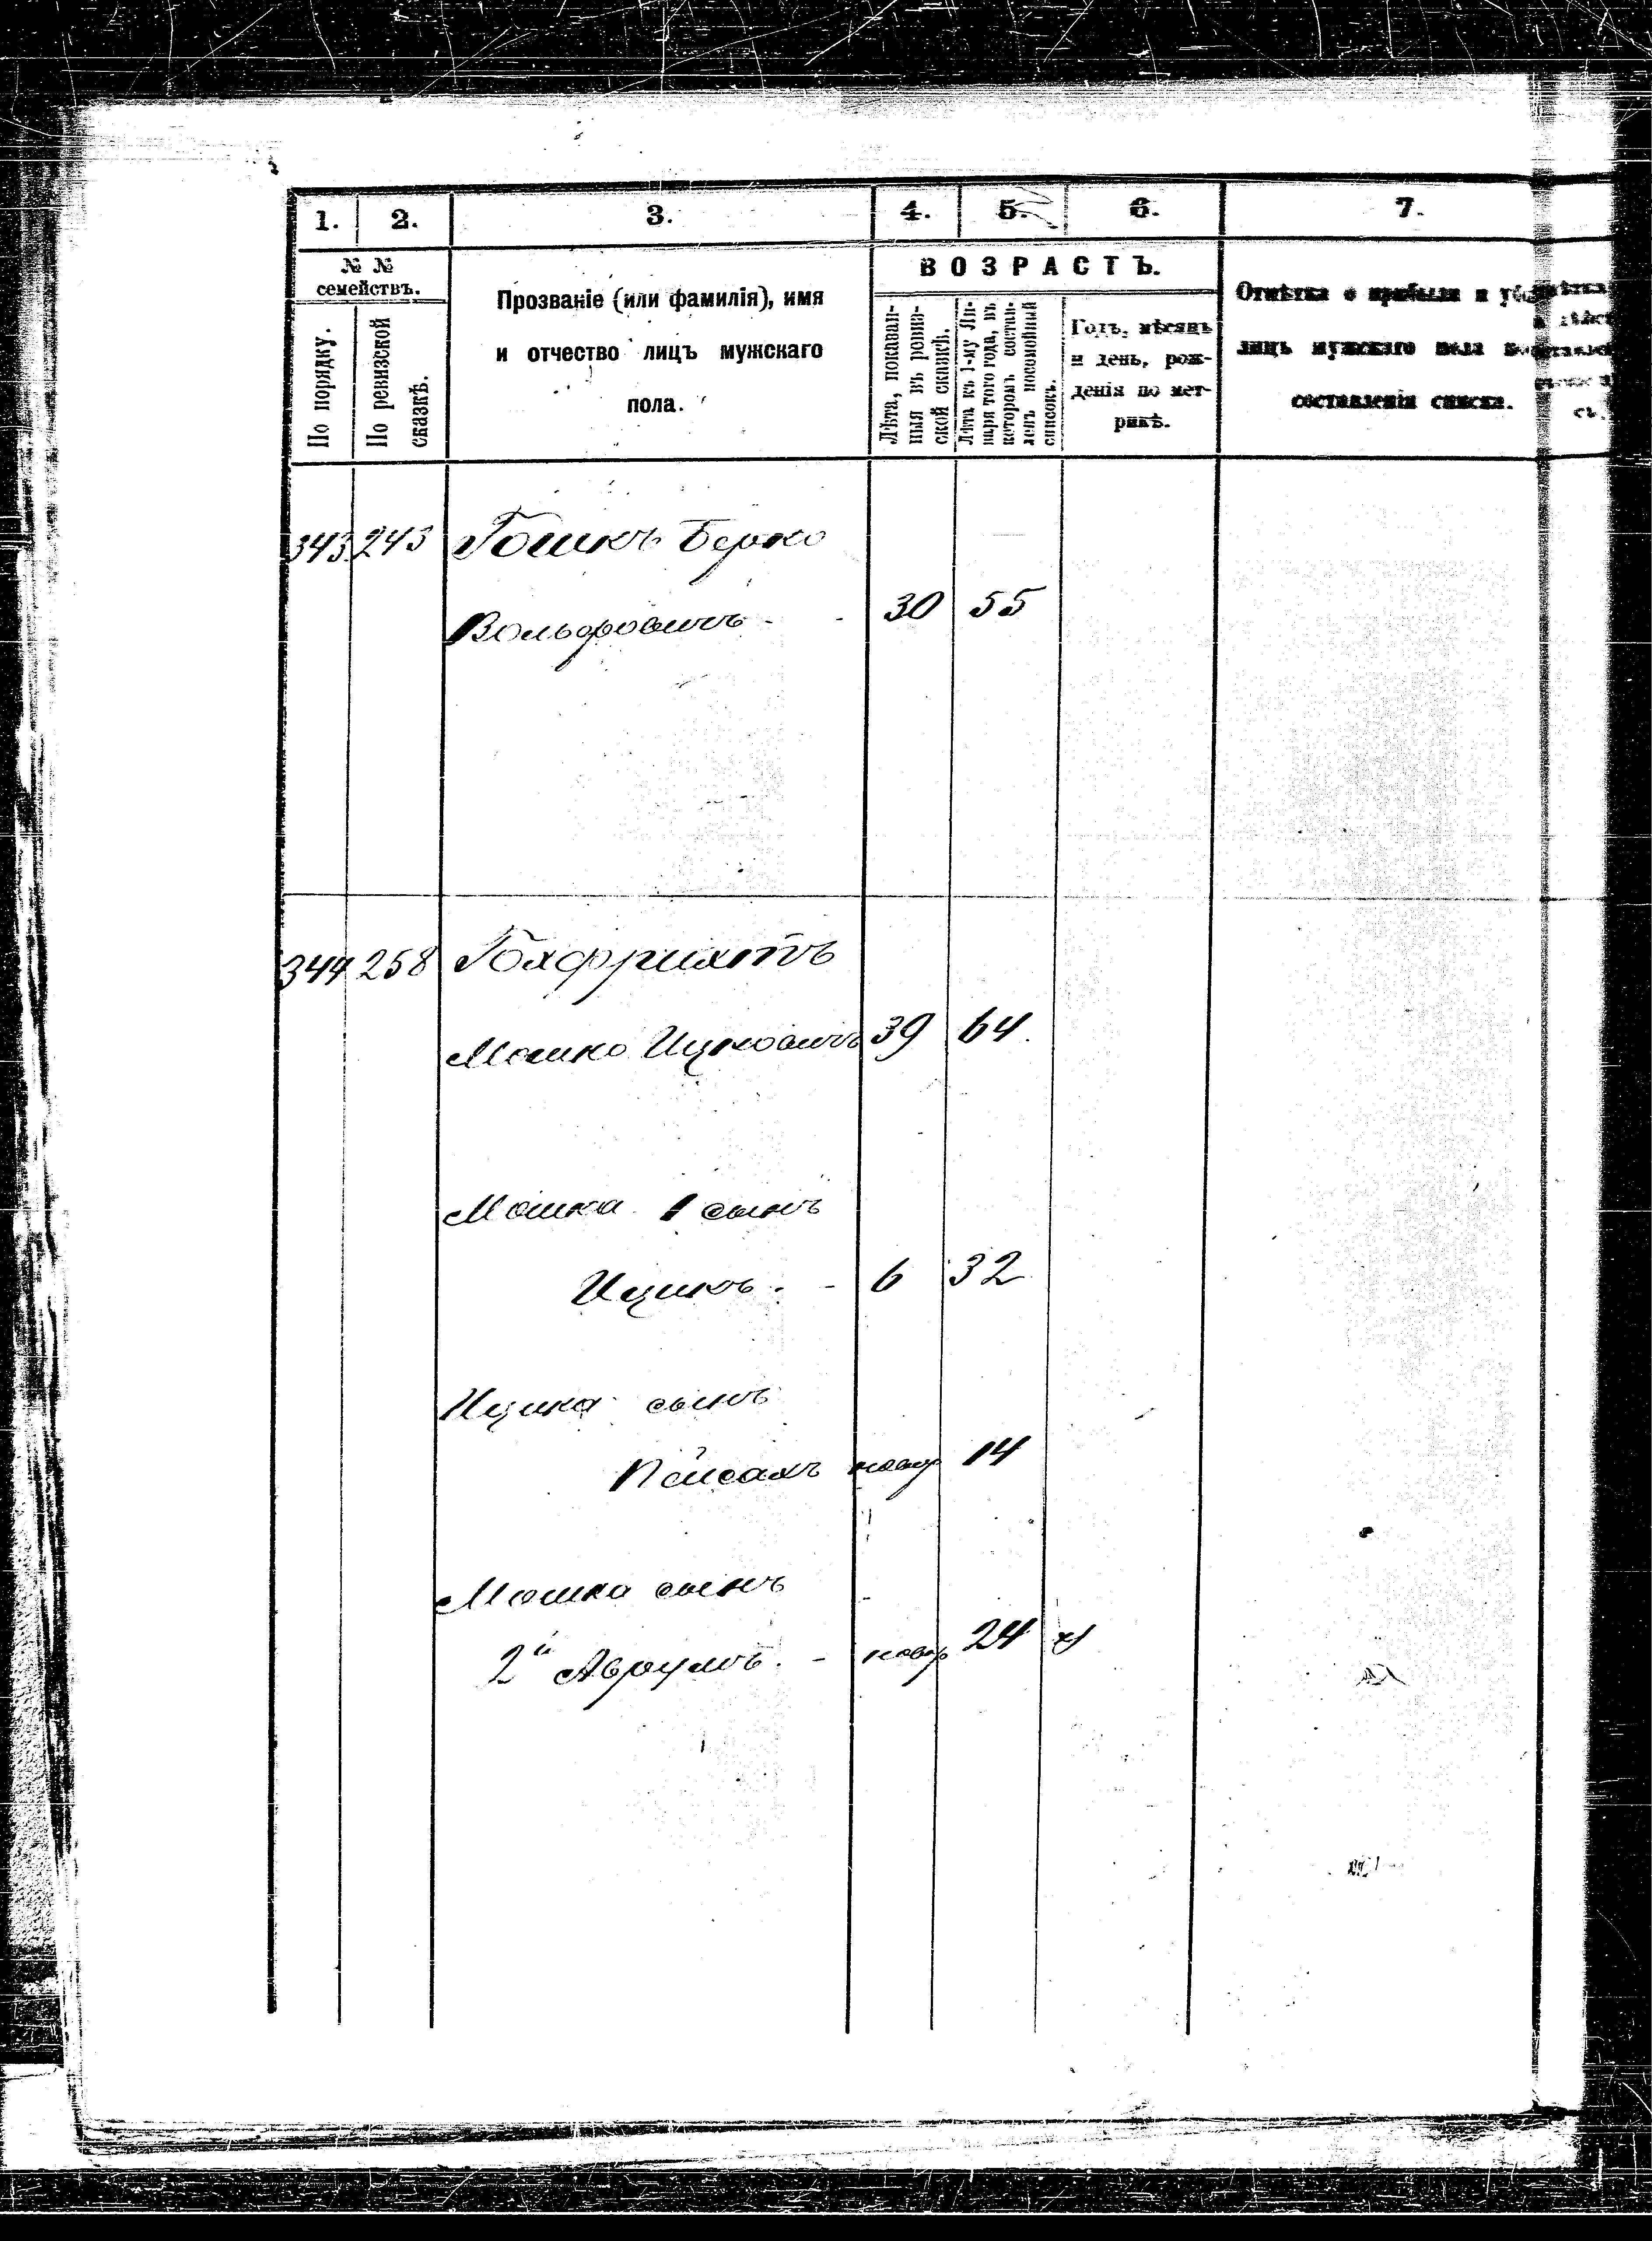 1. 2. 3. 4. 5. 6. 7.
№ №
семействъ.
По порядку.
По ревизской
сказкѣ.
Прозваніе (или фамилія), имя
и отчество лицъ мужскаго
пола.
ВОЗРАСТЪ.
Лѣта, показан-
ныя въ ревиз-
ской сказкѣ.
Лѣта къ 1-му Ян-
варя того года, въ
которомъ состав-
ленъ посемейный
списокъ.
Годъ, мѣсяцъ
и день, рож-
денія по мет-
рикѣ.
Отмѣтка о прибыли и
лицъ мужскаго пола
составленія списка.
343 243 Гошкъ Берко
Вольфовичъ - - 30 55
344 258
Мошко Ицковичъ 39 64.
Мошка 1 сынъ
Ицикъ. - 6 32
Ицика сынъ
Пейсахъ новор 14
Мошка сынъ
2й Аврумъ. - новор 24